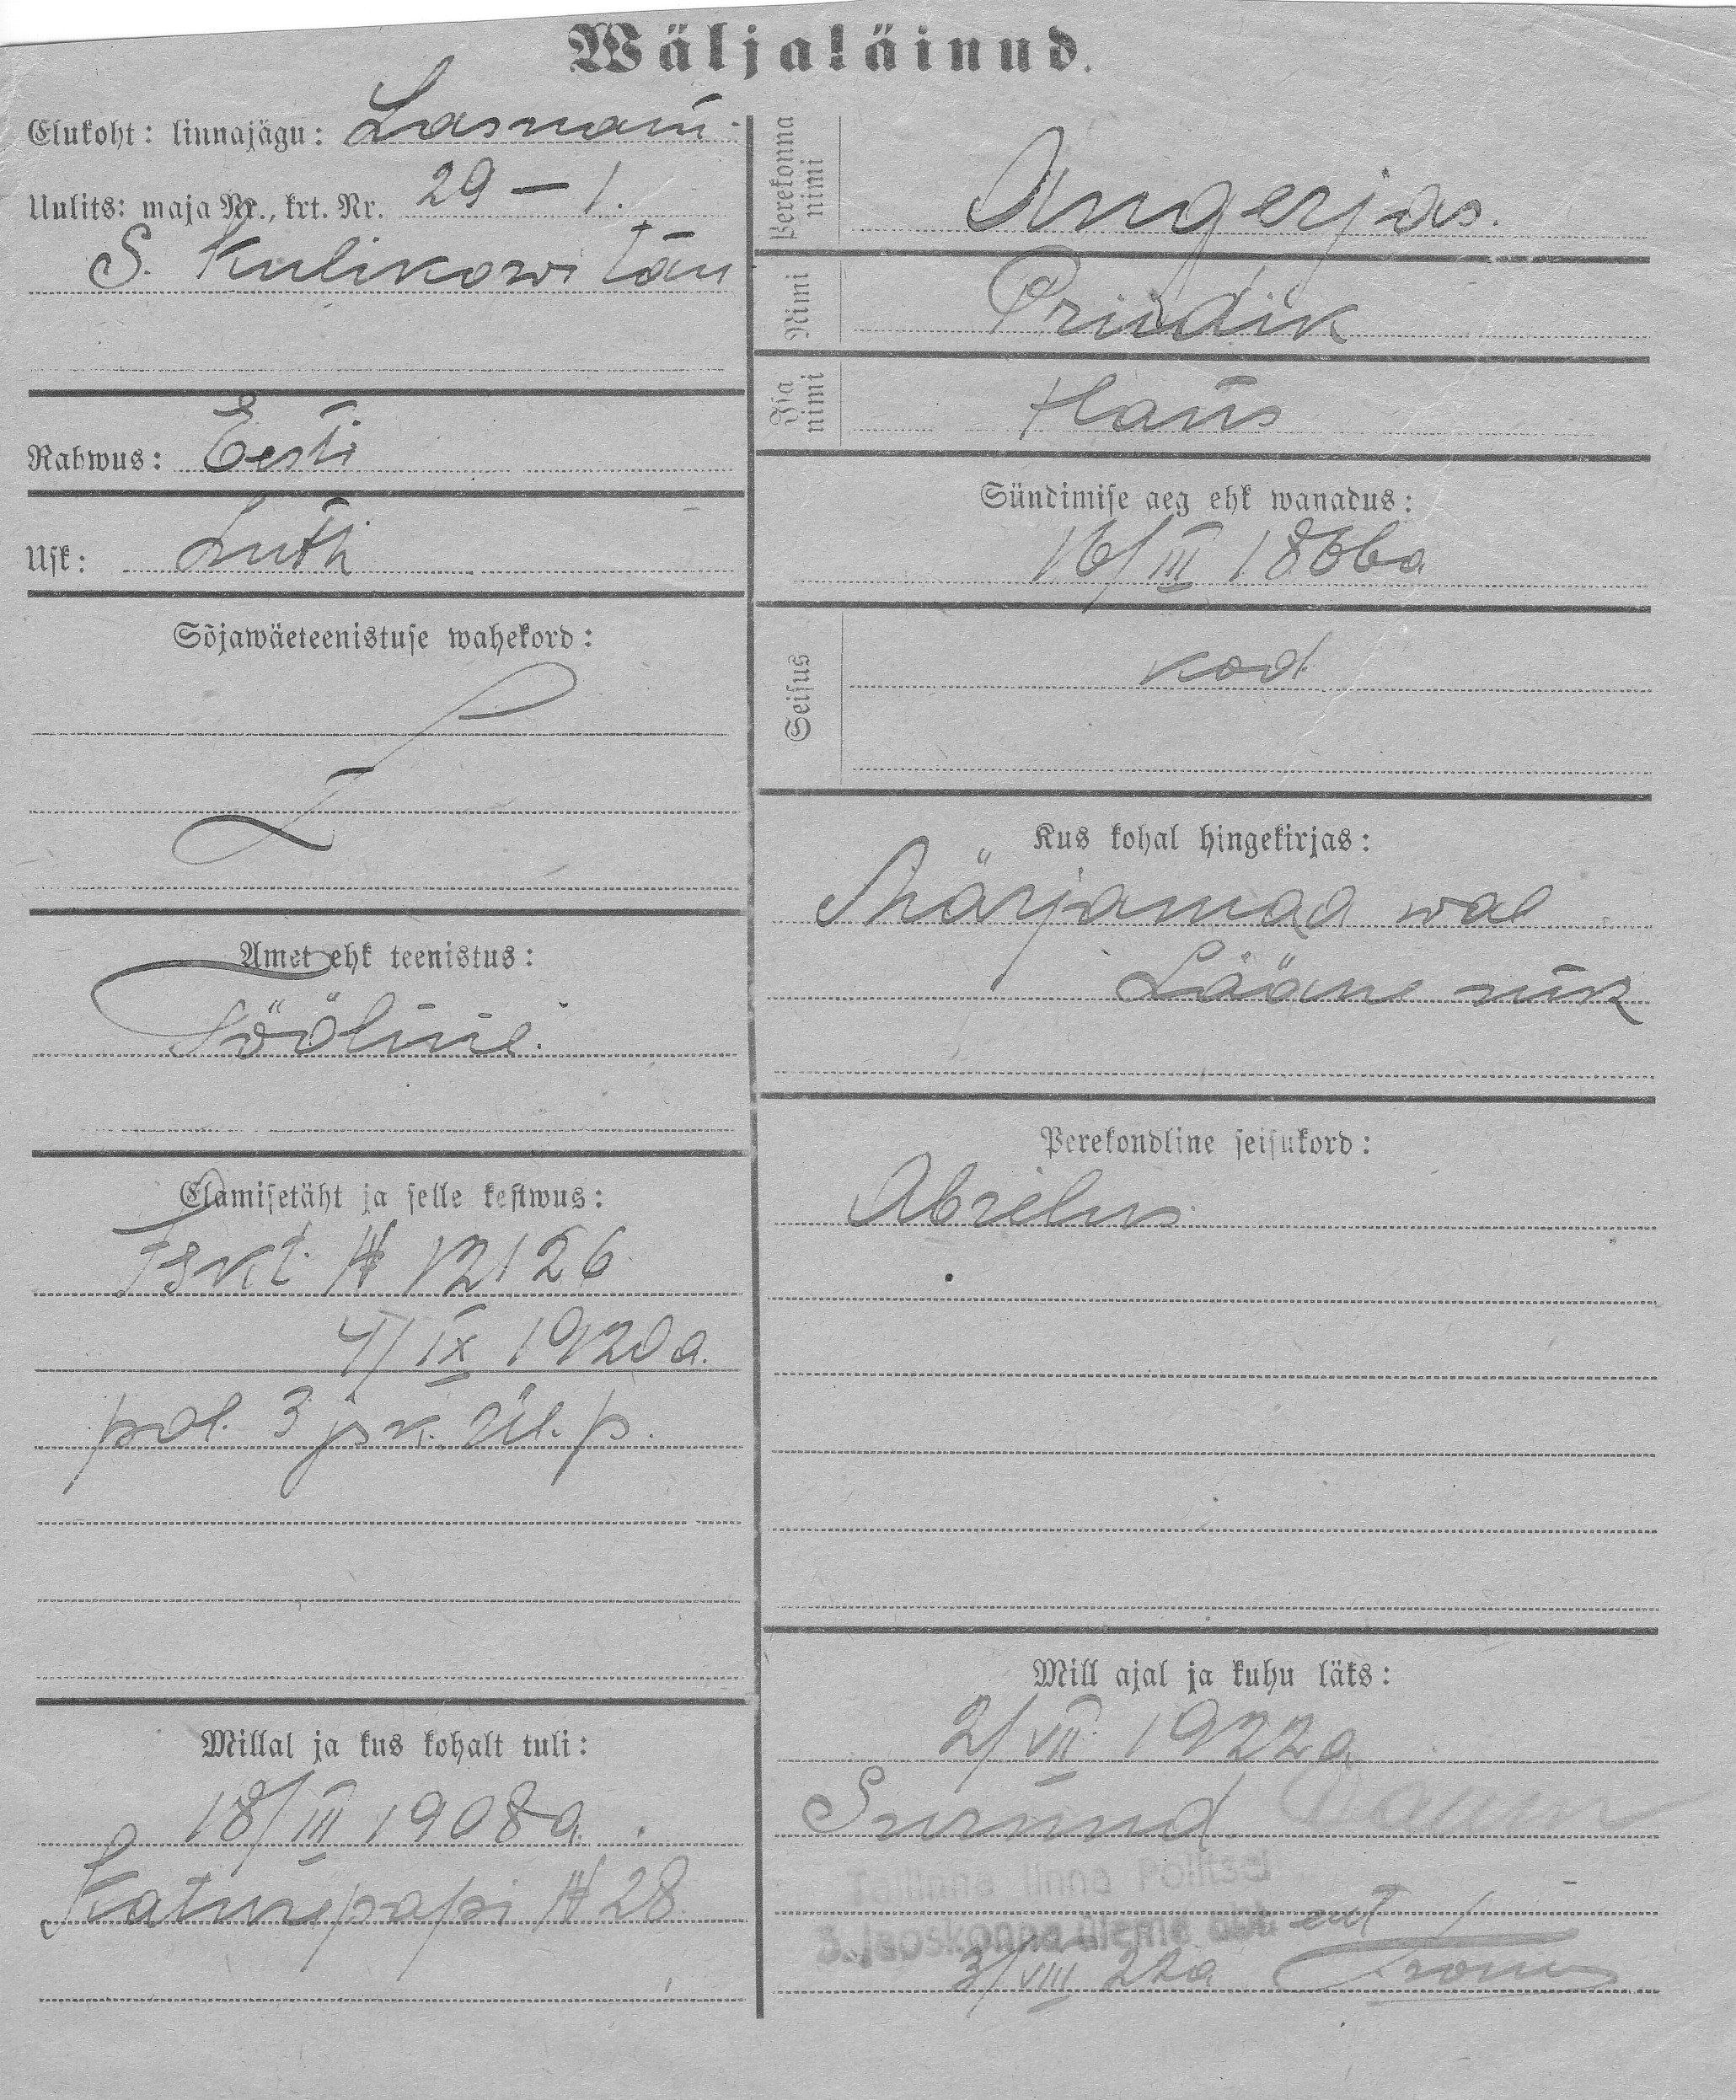 Wäljaläinud.
Elukoht: linnajägu: Lasnam.
Uulits: maja Nr., krt. Nr. 29 – 1.
S. Kulikowi tän
Rahwus: Eesti
Usk: Luth
Sõjawäeteenistuse wahekord:
Amet ehk teenistus:
Tööline.
Elamisetäht ja selle kestwus:
Iskt. № 12126
4/IX 1920 a.
pol. 3 jsk. Ül. p.
Millal ja kus kohalt tuli:
18/III 1908 a.
Katusepapi № 28
Perekonna nimi
Angerjas.
Nimi
Priidik
Isa nimi
Hans
Sündimise aeg ehk wanadus:
16/III 1866 a
Seisus
kod.
Kus kohal hingekirjas:
Märjamaa wal
Lääne
Perekondline seisukord:
Abielus.
Mill ajal ja kuhu läks:
2/VII 1922 a
Surnud.
Tallinna linna Politsei
3. jaoskonna ülema abi
3/VIII 22 a